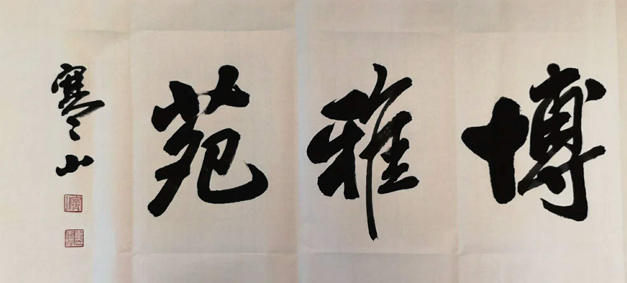 博雅苑
寒山